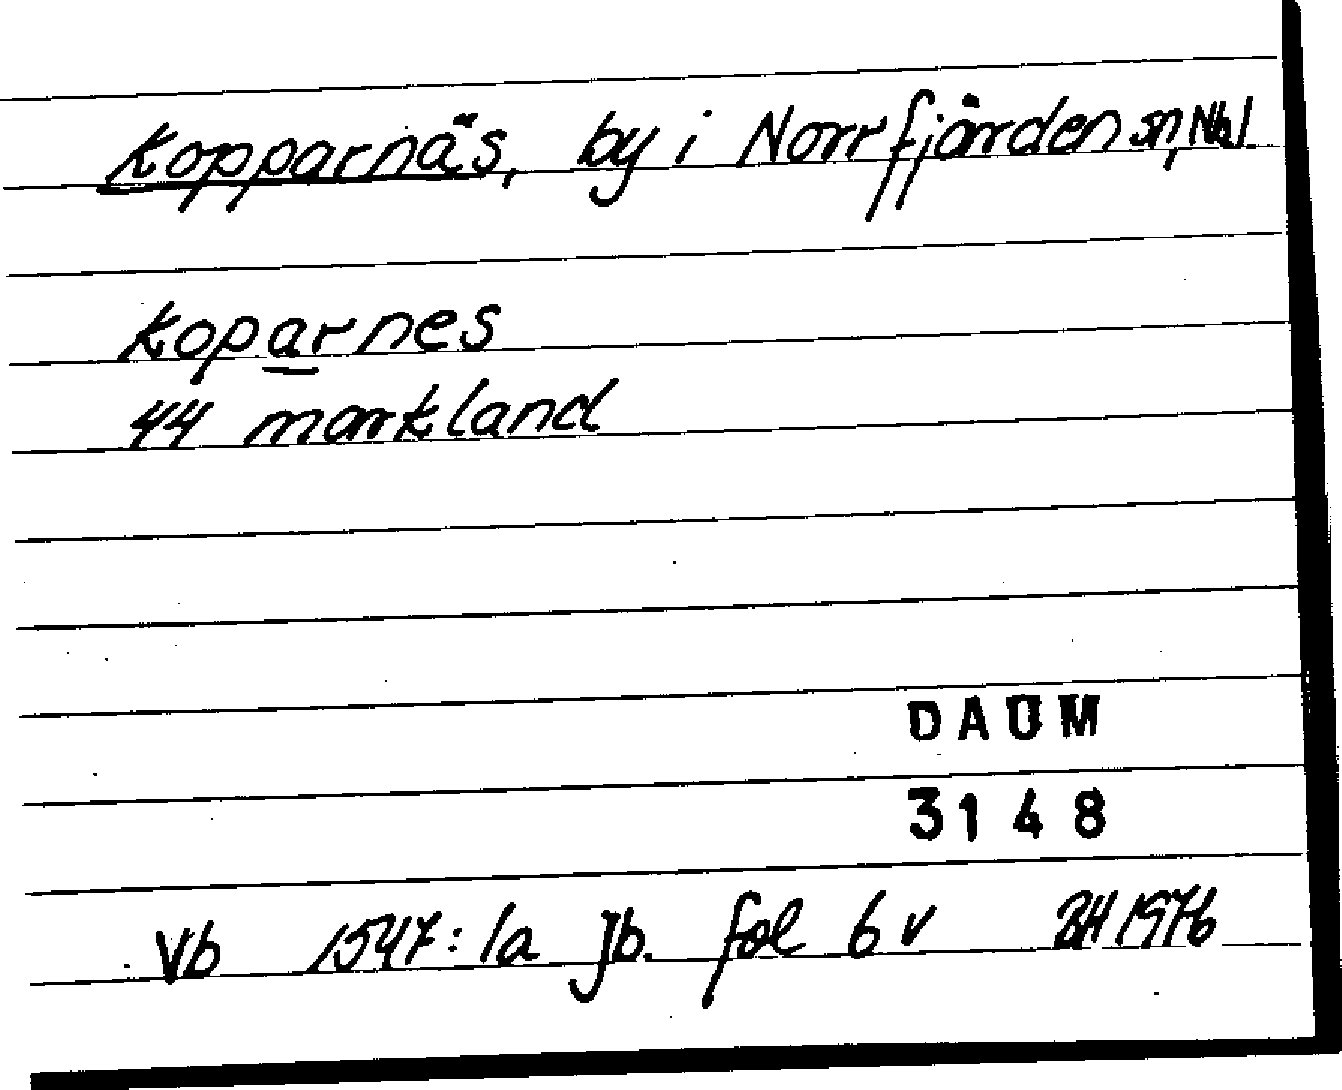 Kopparnäs, by i Norrfjärden sn, Nbl
Koparnes
44 markland
DAUM
3148
Vb 1547:1a jb. fol 6 v BH 1976